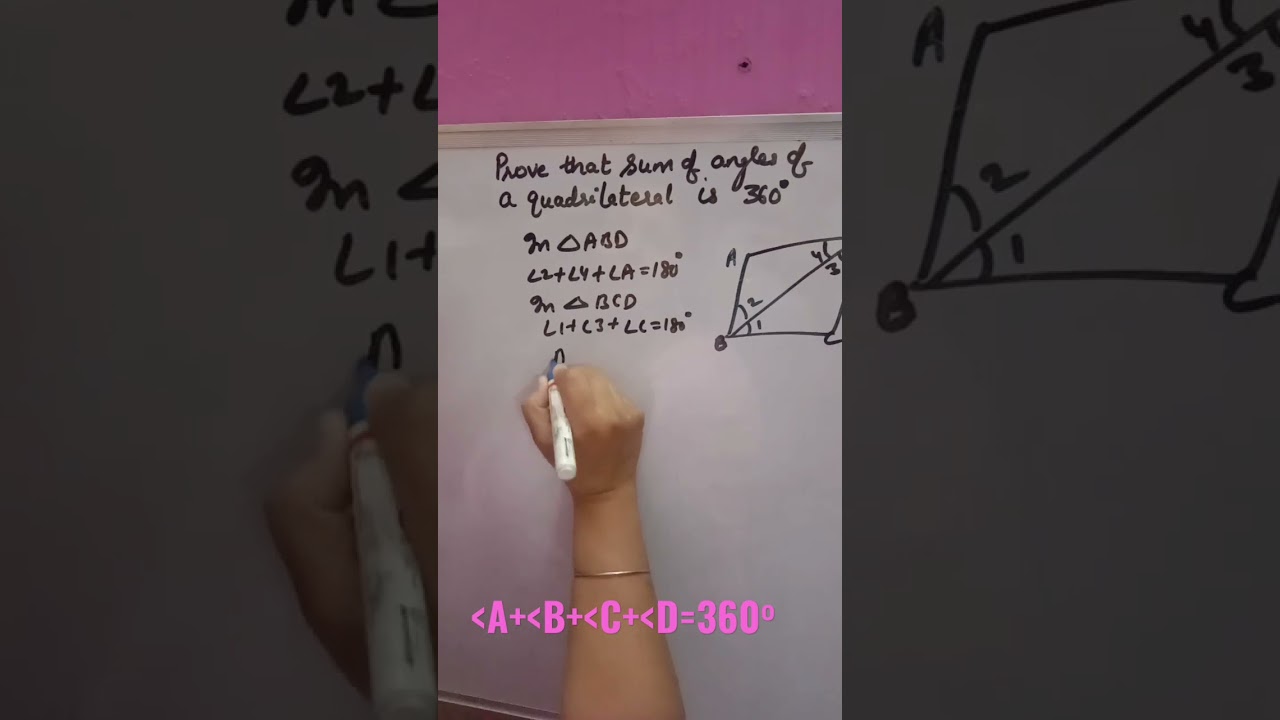 Prove that sum of angles of
a quadrilateral is 360°
In △ABD
∠2+∠4+∠A=180°
In △BCD
∠1+∠3+∠C=180°
A
4
3
2
1
B
C
<A+<B+<C+<D=360°
∠2+∠
In △
∠1+
A
4
3
2
1
B
C